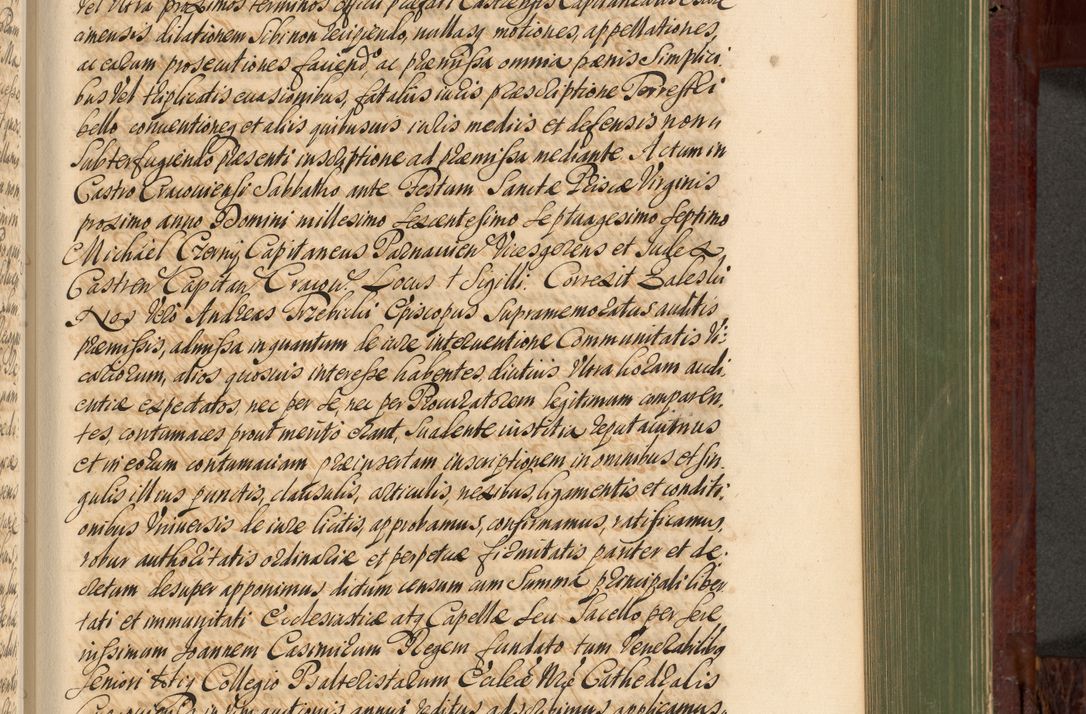 vel ultra proximos terminos officii præfati Castrensis Capitanealis Craco
amensis dilationem sibi non exigendo, nullasq motiones, appellationes,
ac earum prosecutiones faciend, ac præmissa omnia pænis simplici
bus vel triplicatis evasionibus, fatalius iuris præscriptione Terrestri
bello conventioneq et aliis quibusvis iuris mediis et defensis non
subterfugiendo præsenti inscriptione ad præmissa mediante. Actum in
Castro Cracoviensi Sabbatho ante Festum Sanctæ Priscæ Virginis
proximo anno Domini millesimo sexcentesimo septuagesimo septimo
Michäel Czerny Capitaneus Parnavien Vicesgerens et Judex
Castren Capitan Cracov. Locus † Sigilli. Correxit Zaleski
Nos Vero Andreas Trzebicki Episcopus Supramemoratus auditis
præmissis, admissa inquantum de iure interventione Communitatis Vi
cariorum, alios quosvis interesse habentes diutius Ultra horam audi
entiæ expectatos, nec per se, nec per Procuratorem legitimum comparen
tes, contumaces prout merito erant, suadente iustitia reputavimus
et in eorum contumaciam præinsertam inscriptionem in omnibus et sin
gulis illius punctis, clausulis, articulis, nexibus, ligamentis et conditi
onibus Universis de iure licitis, approbamus, confirmamus, ratificamus,
robur authoritatis ordinariæ et perpetuæ firmitatis pariter et de
cretum desuper apponimus dictum censum cum Summa principali liber
tati et immunitati Ecclesiasticæ atq Capellæ seu Sacello per sere
nissimum Joannem Casimirum Regem fundato tum Venerabilibq
Seniori totiq Collegio Psalteristarum Ecclæ Cathedralis
annui reditus adscribimus applicamus,